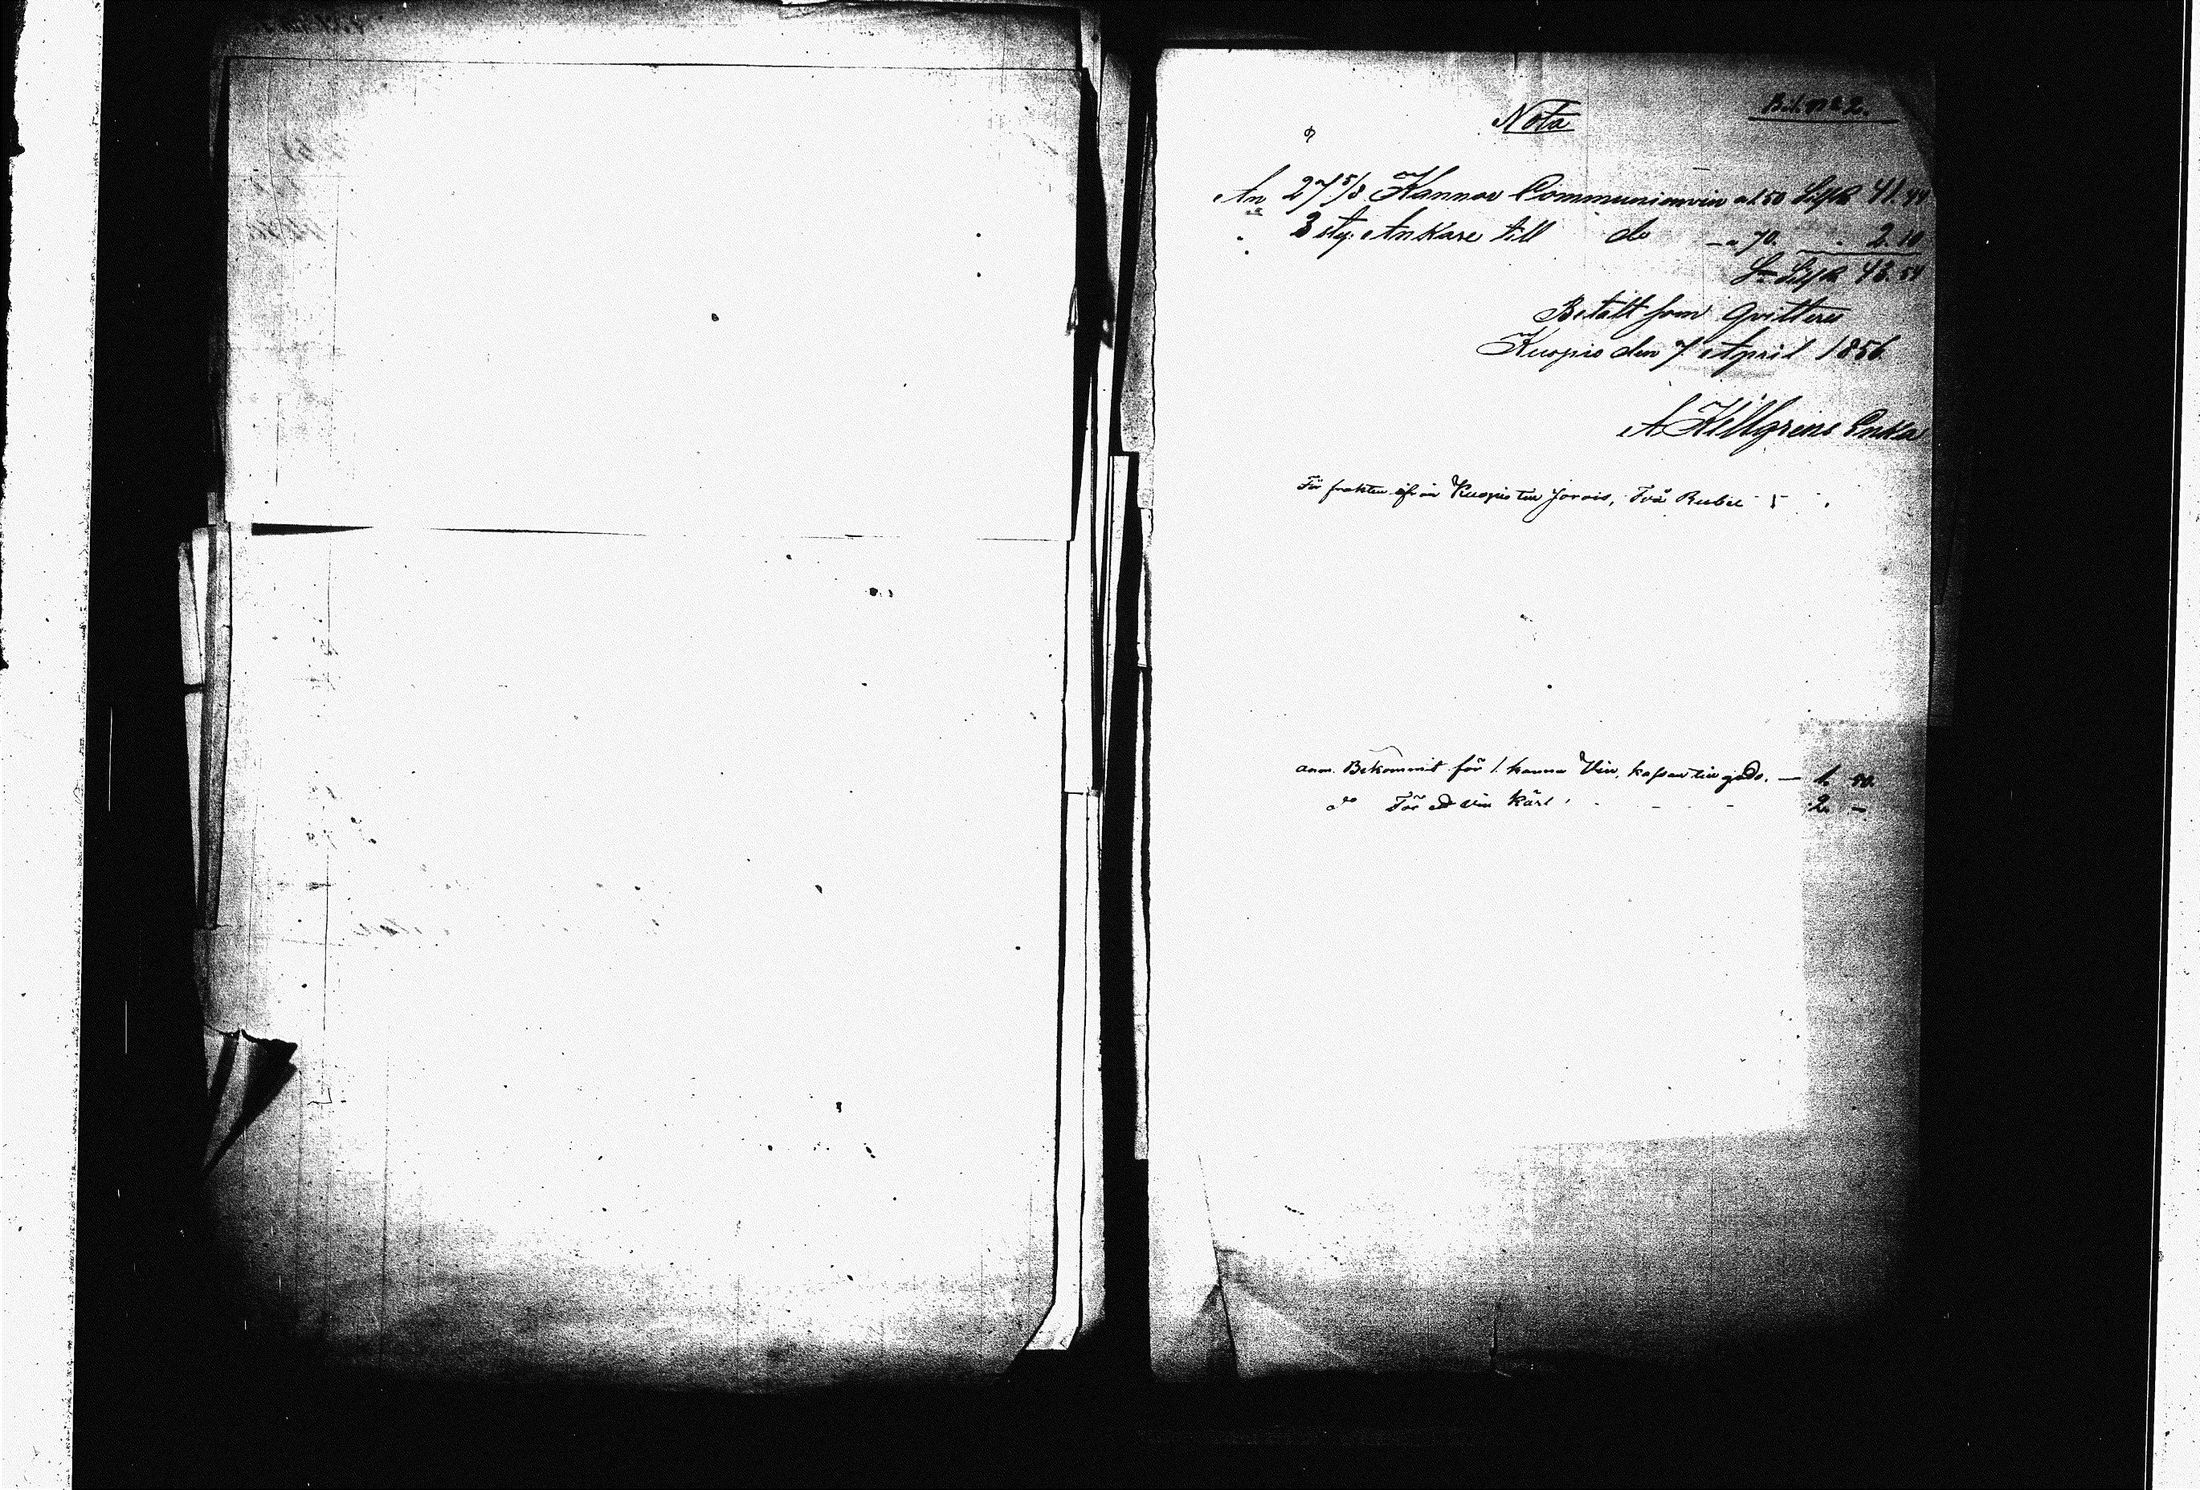 Bil. No 2.
Nota
An 27 5/8 Kannor Communionvin a 1.50 S. Rb 41.44
" 3 sty. Ankare till do — a 70. — 2.10
Sa S. Rb 43.54
Betalt som Qvitteras
Kuopio den 7 April 1856.
A Kellgrens Enka
För frakten ifrån Kuopio till Jorois, Två Rubel
anm. Bekommit för 1. kanna Vin, kassan till godo. — 1. 50.
do För ett vin kärl — 2. —